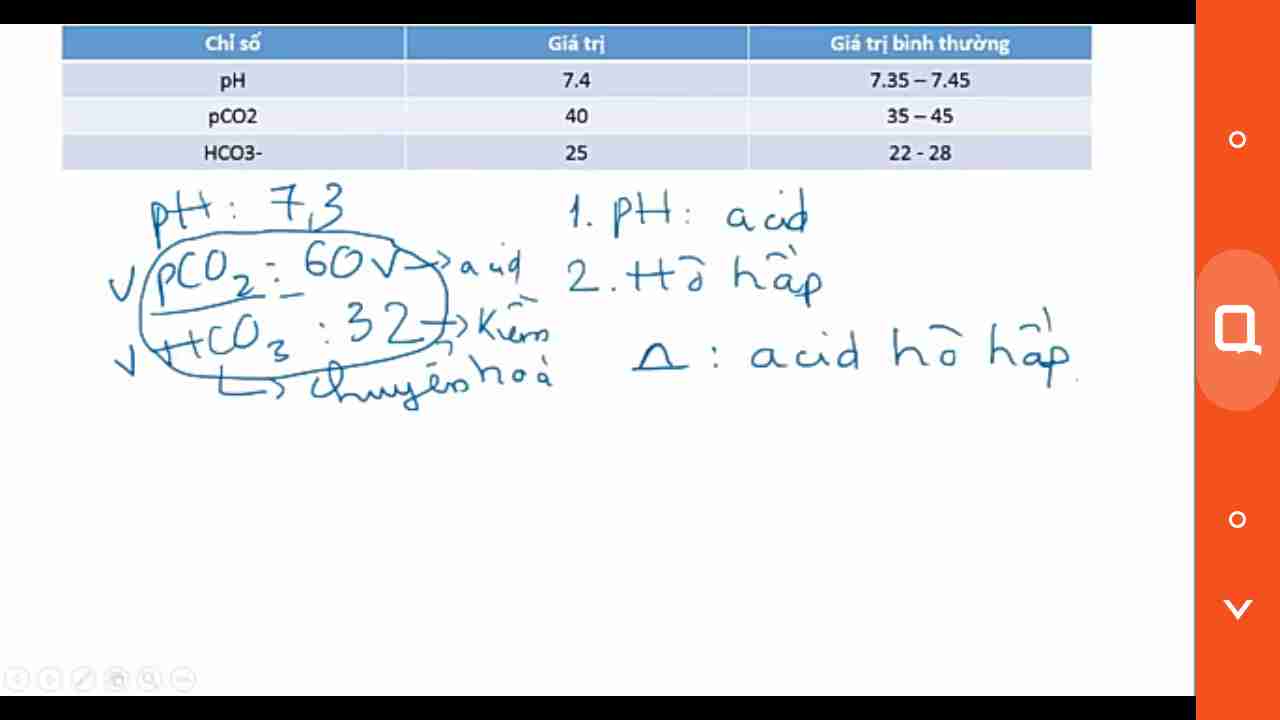 Chỉ số Giá trị Giá trị bình thường
pH 7.4 7.35 – 7.45
pCO2 40 35 – 45
HCO3- 25 22 - 28
pH: 7,3
pCO2: 60 → acid
HCO3: 32 → Kiềm
↳ chuyển hoá
1. pH: acid
2. Hô hấp
Δ: acid hô hấp.